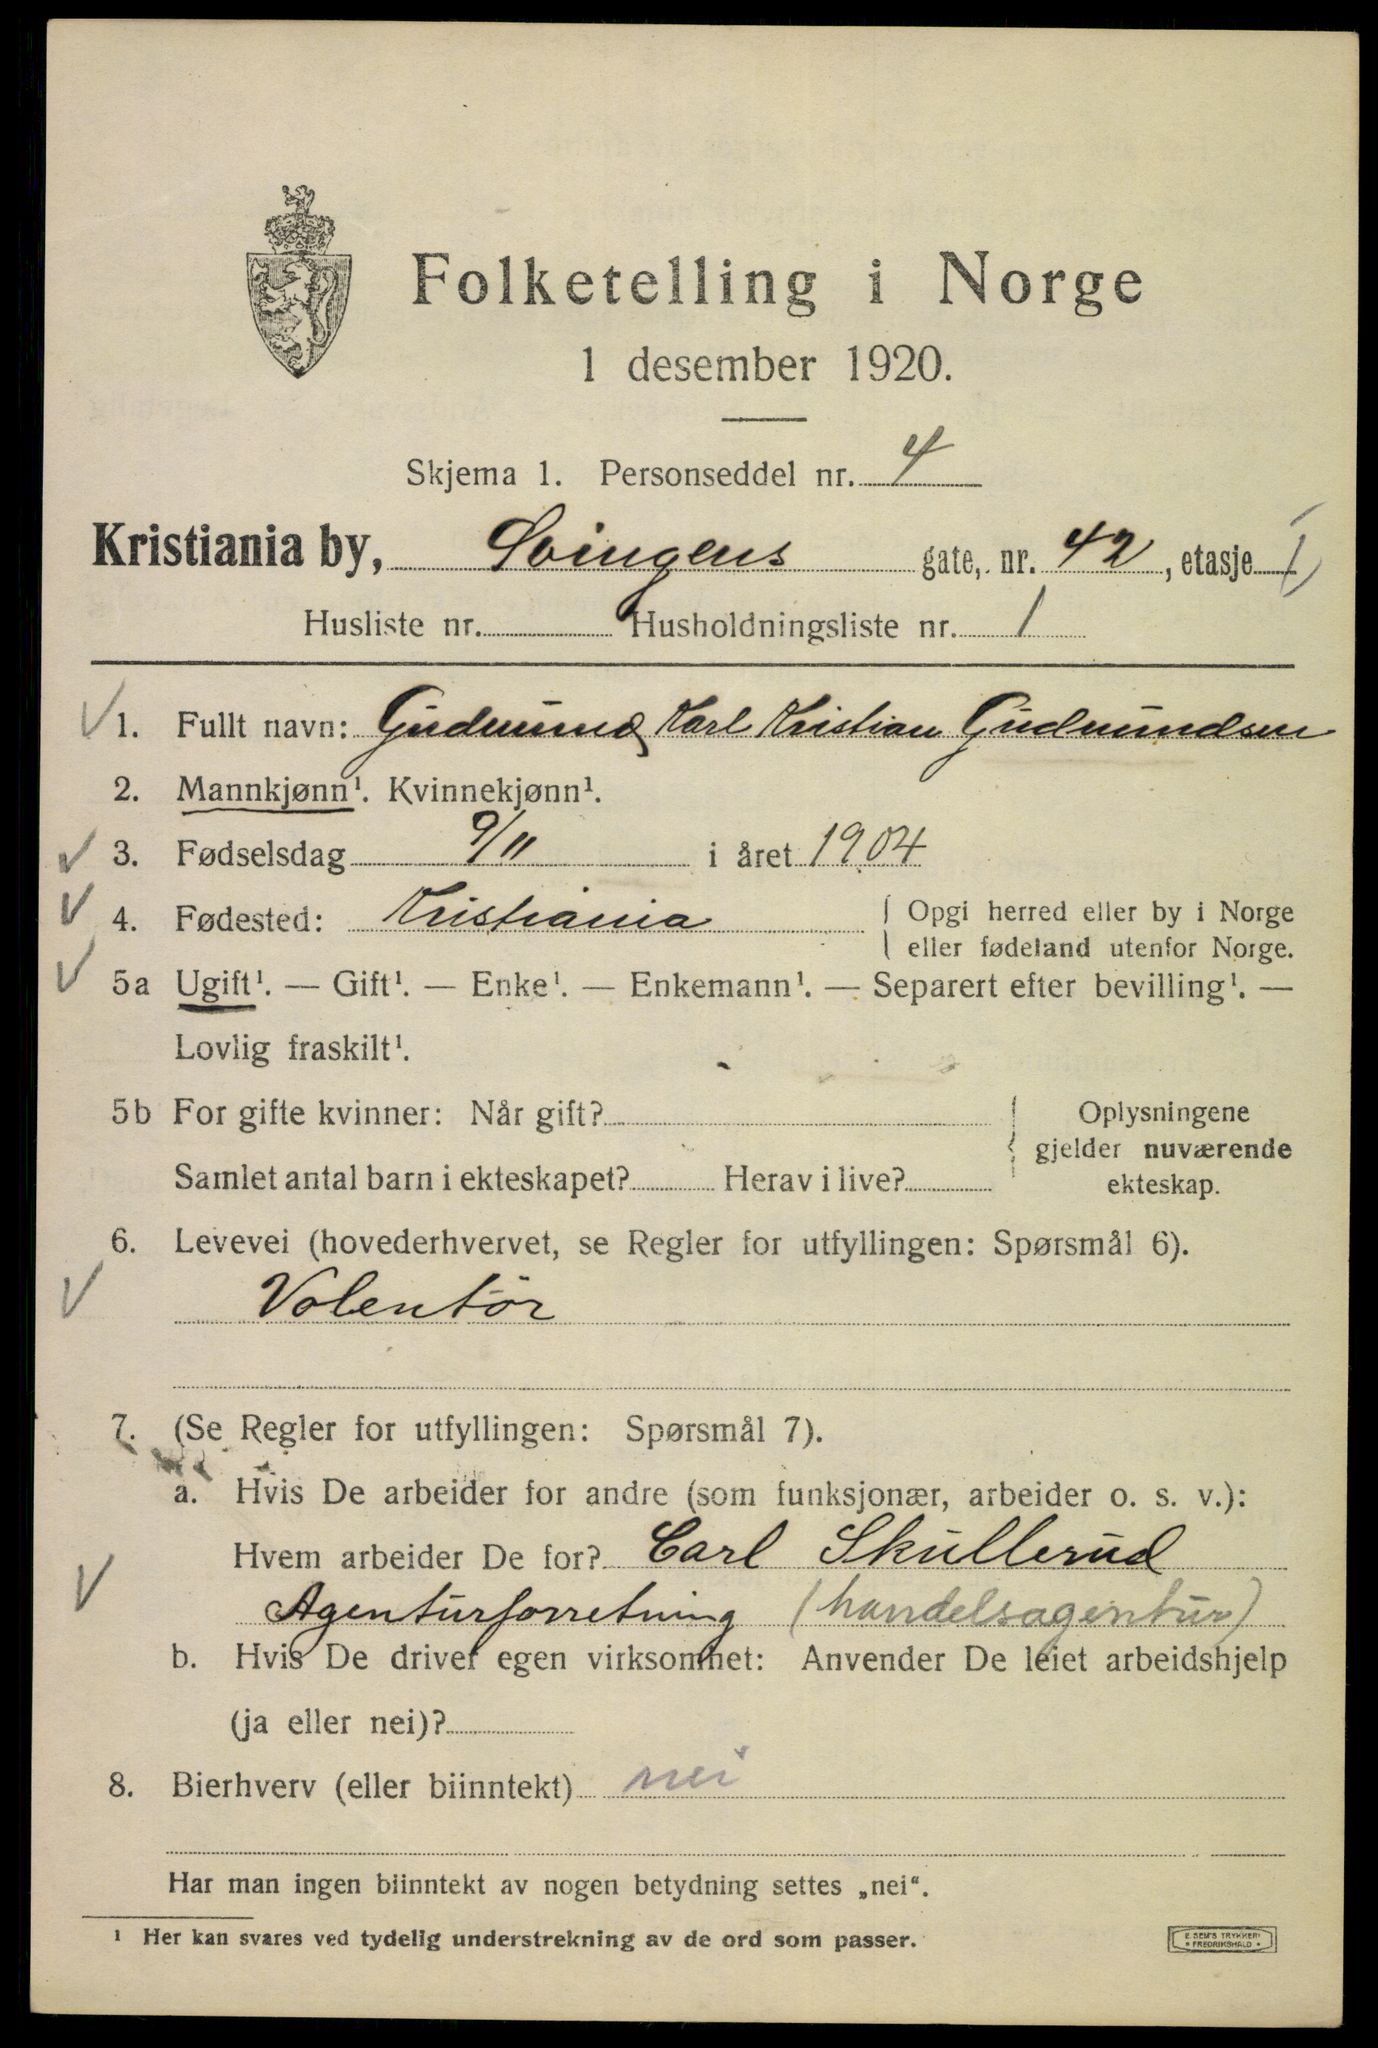 Folketelling i Norge
1 desember 1920.
Skjema 1. Personseddel nr. 4
Kristiania by, Svingens gate, nr. 42, etasje 1
Husliste nr. Husholdningsliste nr. 1
1. Fullt navn: Gudmund Karl Kristian Gudmundsen
2. Mannkjønn¹. Kvinnekjønn¹.
3. Fødselsdag 9/11 i året 1904
4. Fødested: Kristiania { Opgi herred eller by i Norge
eller fødeland utenfor Norge.
5a Ugift¹. — Gift¹. — Enke¹. — Enkemann¹. — Separert efter bevilling¹. —
Lovlig fraskilt¹.
5b For gifte kvinner: Når gift? { Oplysningene
gjelder nuværende
Samlet antal barn i ekteskapet? Herav i live? ekteskap.
6. Levevei (hovederhvervet, se Regler for utfyllingen: Spørsmål 6).
Volentör
7. (Se Regler for utfyllingen: Spørsmål 7).
a. Hvis De arbeider for andre (som funksjonær, arbeider o. s. v.):
Hvem arbeider De for? Carl Skullerud
Agenturforretning (handelsagentur)
b. Hvis De driver egen virksomhet: Anvender De leiet arbeidshjelp
(ja eller nei)?
8. Bierhverv (eller biinntekt) nei
Har man ingen biinntekt av nogen betydning settes „nei“.
¹ Her kan svares ved tydelig understrekning av de ord som passer.
E. SEM'S TRYKKERI
• FREDRIKSHALD •